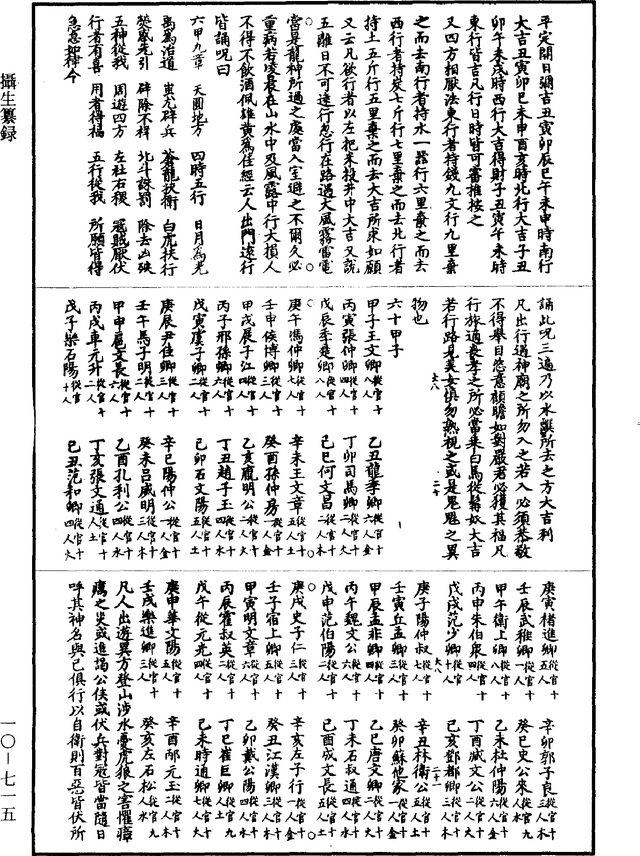 平定開日彌吉丑寅卯辰巳午未申時南行
大吉丑寅卯巳未申酉亥時北行大吉子丑
卯午未戌時西行大吉得財子丑寅午未時
東行皆吉凡行日時皆可審推按之
又四方相厭法東行者持錢九文行九里棄
之而去南行者持水一器行六里棄之而去
西行者持炭七斤行七里棄之而去北行者
持土五斤行五里棄之而去大吉所求如願
又云凡欲行者以左把米投井中大吉又說
五離日不可遠行忽行在路遇大風霧雷電
當是龍神所過之處當入室避之不爾久必
重病若凌晨在山水中及風露中行大損人
不得不飲酒佩雄黃爲佳經云人出門遠行
皆誦呪曰
六甲九章 天圓地方 四時五行 日月爲光
禹爲治道 蚩尤辟兵 蒼龍扶衛 白虎扶行
熒惑先引 辟除不祥 北斗誅罰 除去凶殃
五神從我 周遊四方 左社右稷 冦賊厭伏
行者有喜 用者得福 五行從我 所願皆得
急急如律令
誦此呪三遍乃以水噀所去之方大吉利
凡出行過神廟之所勿入之若入必須恭敬
不得舉目恣意顧瞻如對嚴君必獲其福凡
行旅遇喪孝之所必當乘白馬從髯奴大吉
若行路見美女慎勿熟視之或是鬼魅之異
物也
六十甲子
甲子王文卿從官十八人 乙丑龍季卿從官十六人金
丙寅張仲卿從官十四人 丁卯司馬卿從官十二人火
戊辰季楚卿從官十八人 己巳何文昌從官十二人木
庚午馮仲卿從官十七人 辛未王文章從官十五人土
壬申侯博卿從官十三人 癸酉孫仲房從官十一人金
甲戌展子江從官十四人 乙亥龐明公從官十二人火
丙子邢孫卿從官十六人 丁丑趙子玉從官十四人水
戊寅虞子卿從官十二人 己卯石文陽從官十五人土
庚辰尹佳卿從官十三人 辛巳陽仲公從官十一人金
壬午馬子明從官十二人 癸未呂威明從官十三人木
甲申扈文長從官十六人 乙酉孔利公從官十四人水
丙戌車元升從官十二人 丁亥張文通從官十五人土
戊子樂石陽從官十人 己丑范和卿從官十四人火
庚寅褚進卿從官十五人 辛卯郭子良從官十三人木
壬辰武稚卿從官十人 癸巳史公來從官九人水
甲午衛上卿從官十八人 乙未杜仲陽從官十六人金
丙申朱伯衆從官十四人 丁酉臧文公從官十二人火
戊戌范少卿從官十八人 己亥鄧都卿從官十三人木
庚子陽仲叔從官十七人 辛丑林衛公從官十五人土
壬寅丘孟卿從官十三人 癸卯蘇他家從官十一人金
甲辰孟非卿從官十四人 乙巳唐文卿從官十二人火
丙午魏文公從官十六人 丁未石叔通從官十四人水
戊申范伯陽從官十二人 己酉成文長從官十五人土
庚戌史子仁從官十三人 辛亥左子行從官十一人金
壬子宿上卿從官十五人 癸丑江漢卿從官十三人木
甲寅明文章從官十六人 乙卯戴公陽從官十四人水
丙辰霍叔英從官十二人 丁巳崔巨卿從官九人土
戊午從元光從官十四人 己未時通卿從官十七人火
庚申華文陽從官十五人 辛酉邴元玉從官十二人木
壬戌樂進卿從官十三人 癸亥左石松從官九人水
凡人出遊異方登山涉水憂虎狼之害懼瘴
癘之災或進謁公侯或伏兵對冦皆當隨日
呼其神名與己俱行以自衛則百惡皆伏所
攝生纂録
一〇—七一五